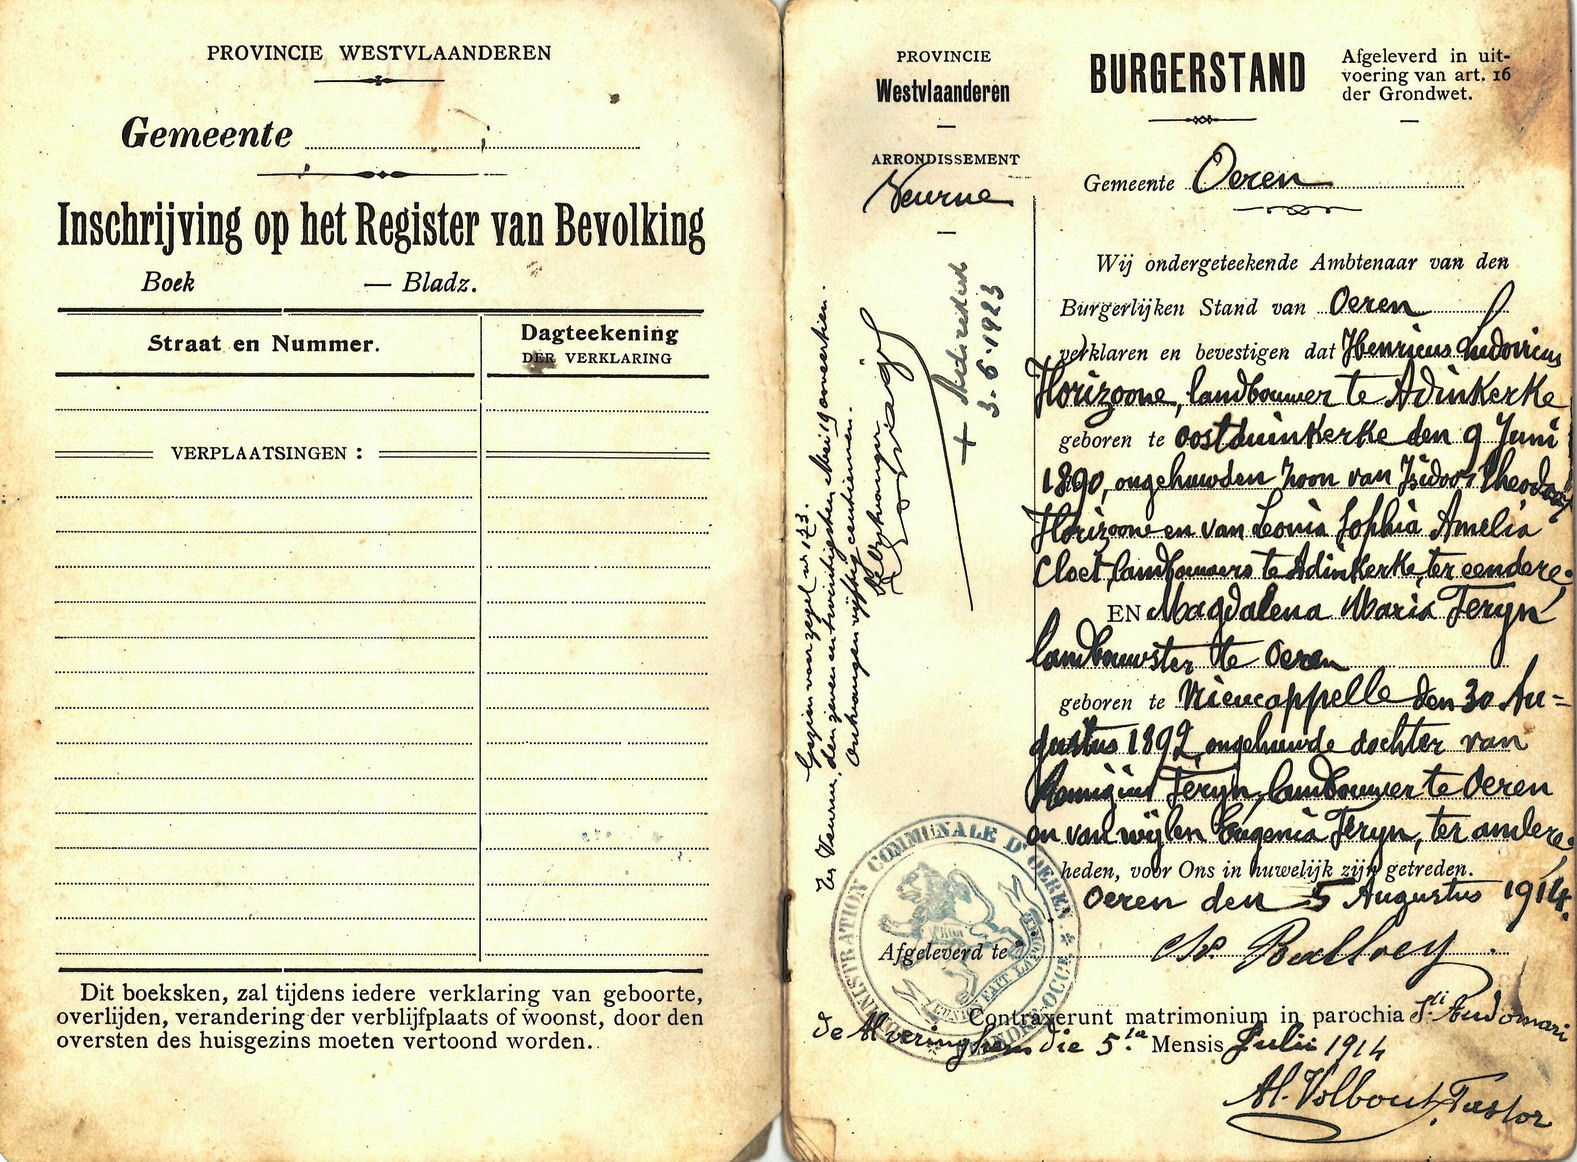 PROVINCIE WESTVLAANDEREN
Gemeente
Inschrijving op het Register van Bevolking
Boek — Bladz.
Straat en Nummer.
Dagteekening
DER VERKLARING
VERPLAATSINGEN :
Dit boeksken, zal tijdens iedere verklaring van geboorte,
overlijden, verandering der verblijfplaats of woonst, door den
oversten des huisgezins moeten vertoond worden.
PROVINCIE
Westvlaanderen
ARRONDISSEMENT
Veurne
BURGERSTAND
Afgeleverd in uit-
voering van art. 16
der Grondwet.
Gemeente Oeren
Wij ondergeteekende Ambtenaar van den
Burgerlijken Stand van Oeren
verklaren en bevestigen dat Henricus Ludovicus
Horizoone, landbouwer te Adinkerke
geboren te Oostduinkerke den 9 Juni
1890, ongehuwden zoon van Isidoor Theodoor
Horizoone en van Leonia Sophia Amelia
Cloet, landbouwers te Adinkerke, ter eendere
EN Magdalena Maria Feryn
landbouwster te Oeren
geboren te Vinckem den 30 Au=
gustus 1892, ongehuwde dochter van
Remigius Feryn, landbouwer te Oeren
en van wijlen Eugenia Feryn, ter andere
heden, voor Ons in huwelijk zijn getreden.
Oeren den 5 Augustus 1914.
Afgeleverd te
Contraxerunt matrimonium in parochia Sti Audomari
de Alveringhem die 5ta Mensis Julii 1914
Pastor
Gezien voor zegel nr 123.
Te Veurne, den zeven en twintigsten Mei 19 veertien.
Ontvangen vijftig centiemen.
De Ontvanger
+ Adinkerke
3-6-1923
ADMINISTRATION COMMUNALE D'OEREN
L'UNION FAIT LA FORCE